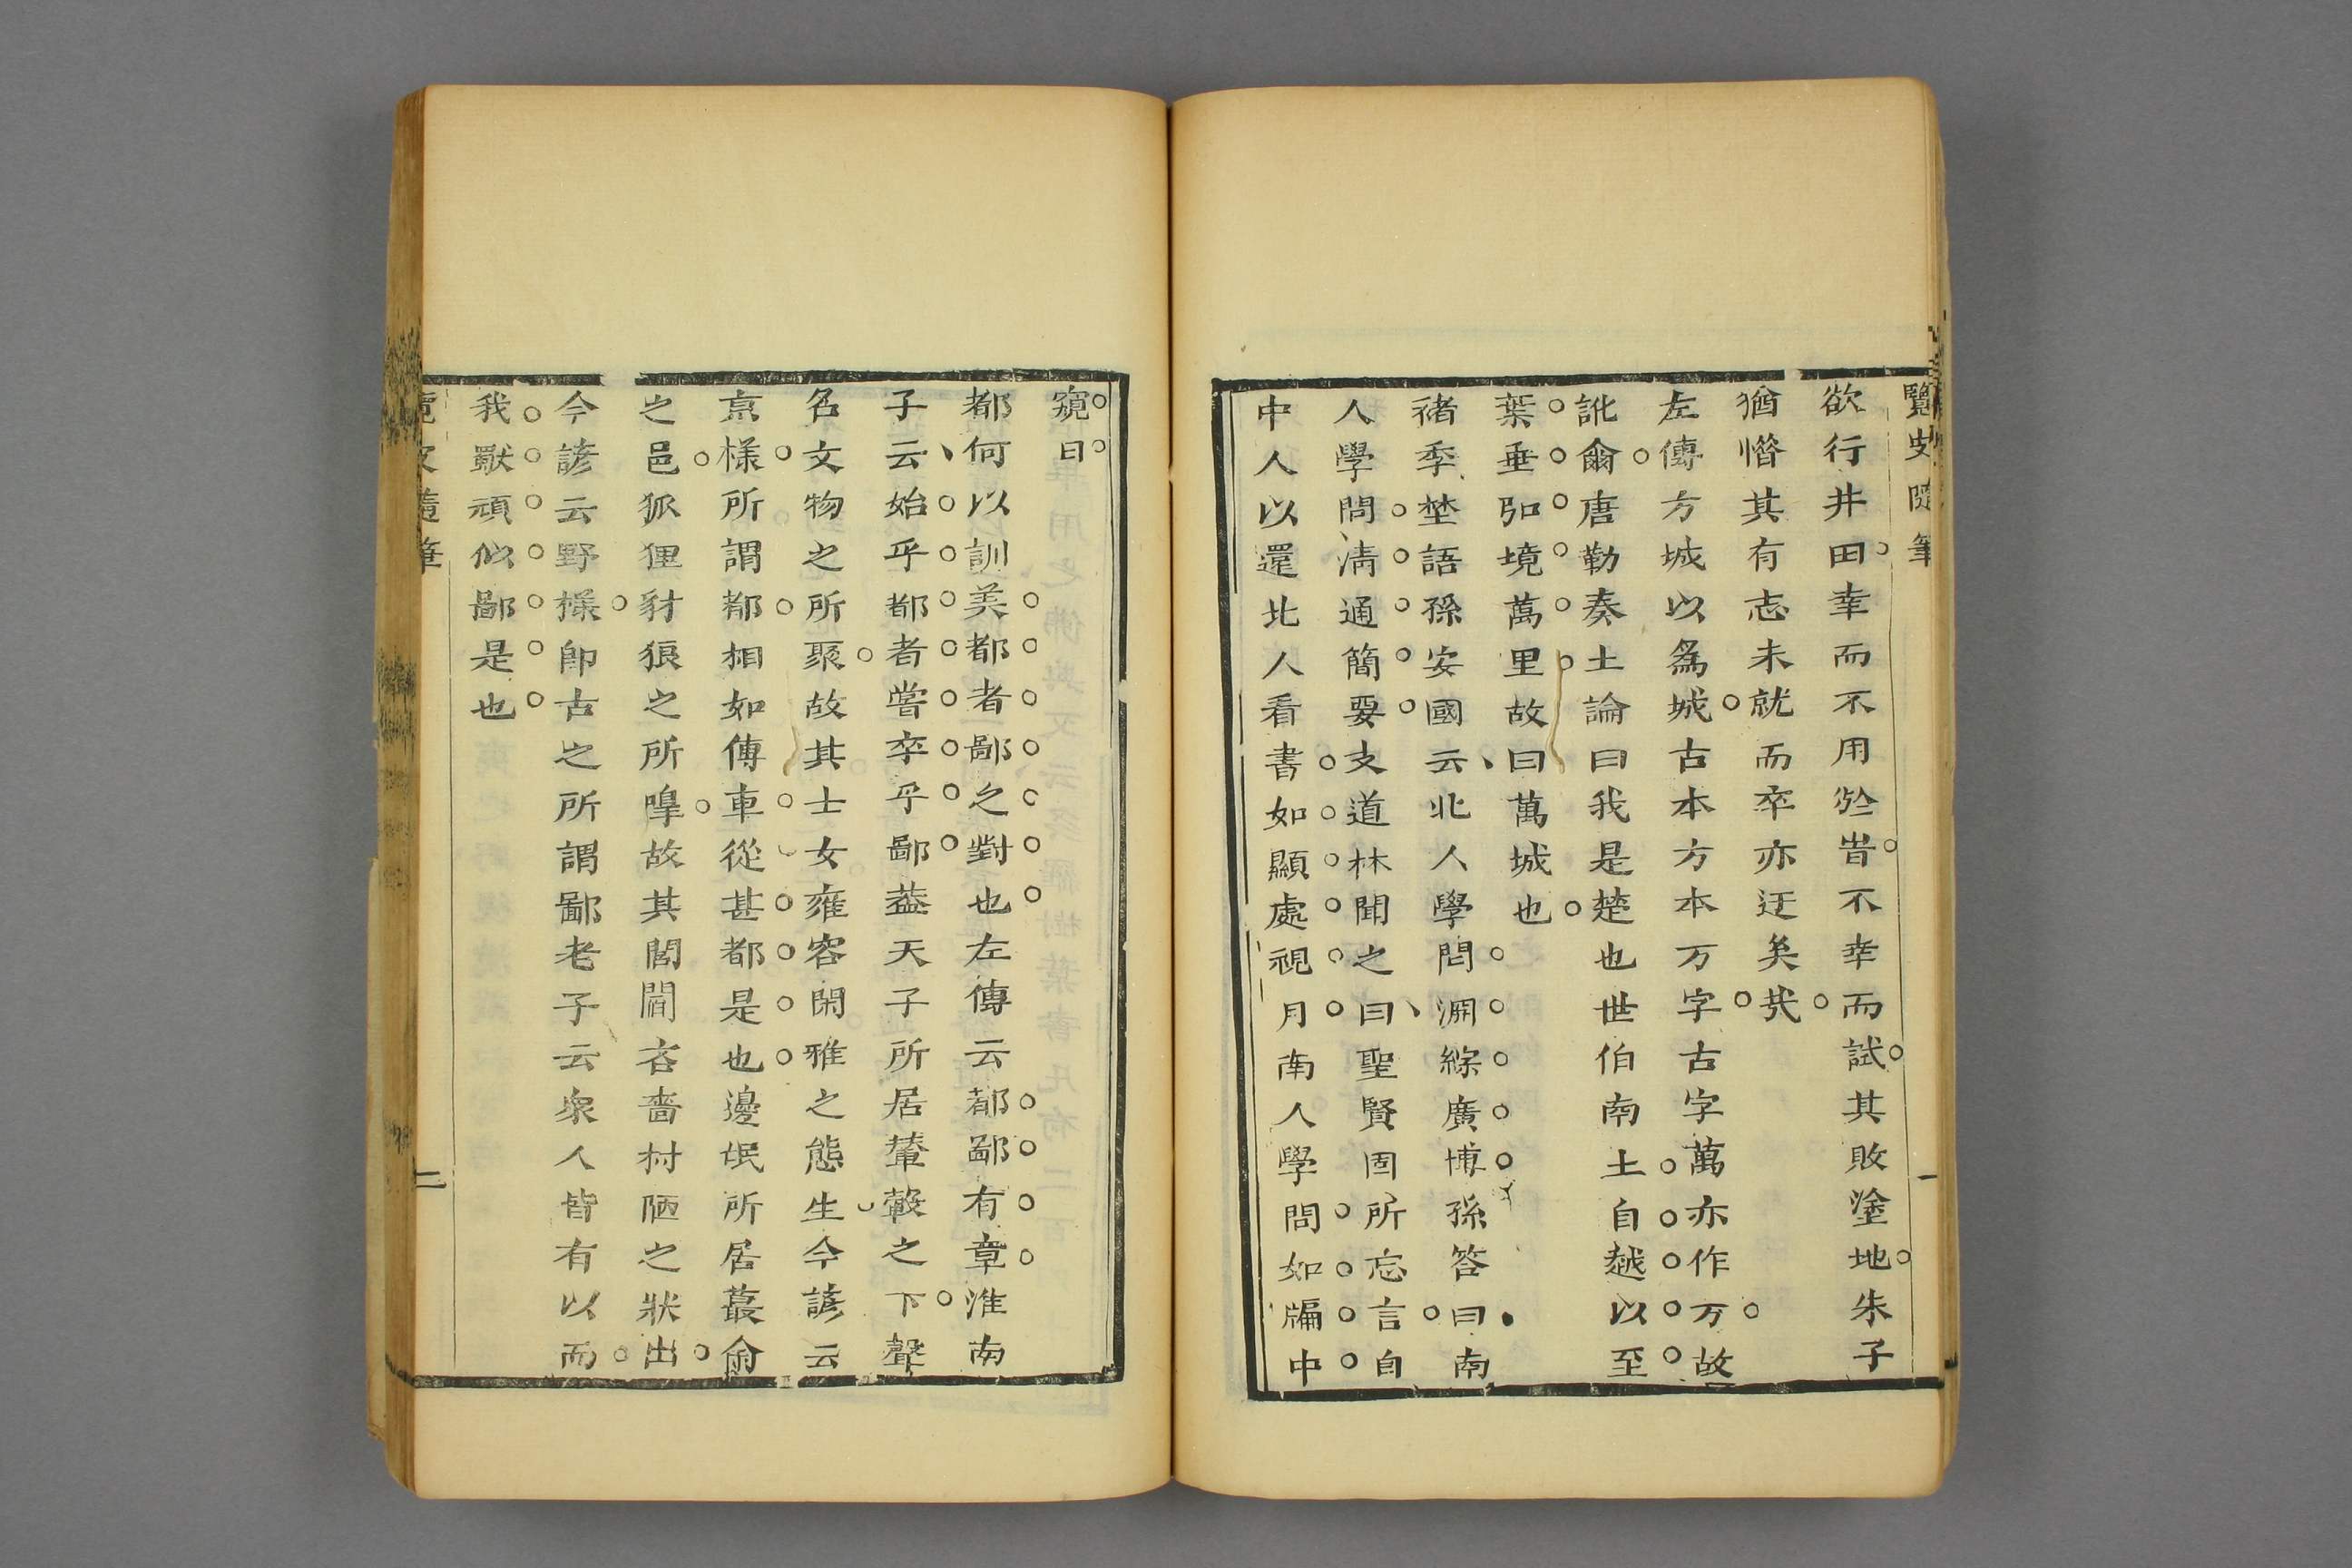 覽史隨筆
一
欲行井田幸而不用於昔不幸而試其敗塗地朱子
猶惜其有志未就而卒亦迂矣哉
左傳方城以爲城古本方本万字古字萬亦作万故
訛爾唐勒奏土論曰我是楚也世伯南土自越以至
葉垂弘境萬里故曰萬城也
褚季埜語孫安國云北人學問淵綜廣博孫答曰南
人學問淸通簡要支道林聞之曰聖賢固所忘言自
中人以還北人看書如顯處視月南人學問如牖中
窺日
都何以訓美都者鄙之對也左傳云都鄙有章淮南
子云始乎都者嘗卒乎鄙葢天子所居輦轂之下聲
名文物之所聚故其士女雍容閑雅之態生今諺云
京樣所謂都相如傳車從甚都是也邊氓所居蕞爾
之邑狐狸豺狼之所嘷故其閭閻吝嗇村陋之狀出
今諺云野樣卽古之所謂鄙老子云衆人皆有以而
我獸頑似鄙是也
覽史隨筆
二